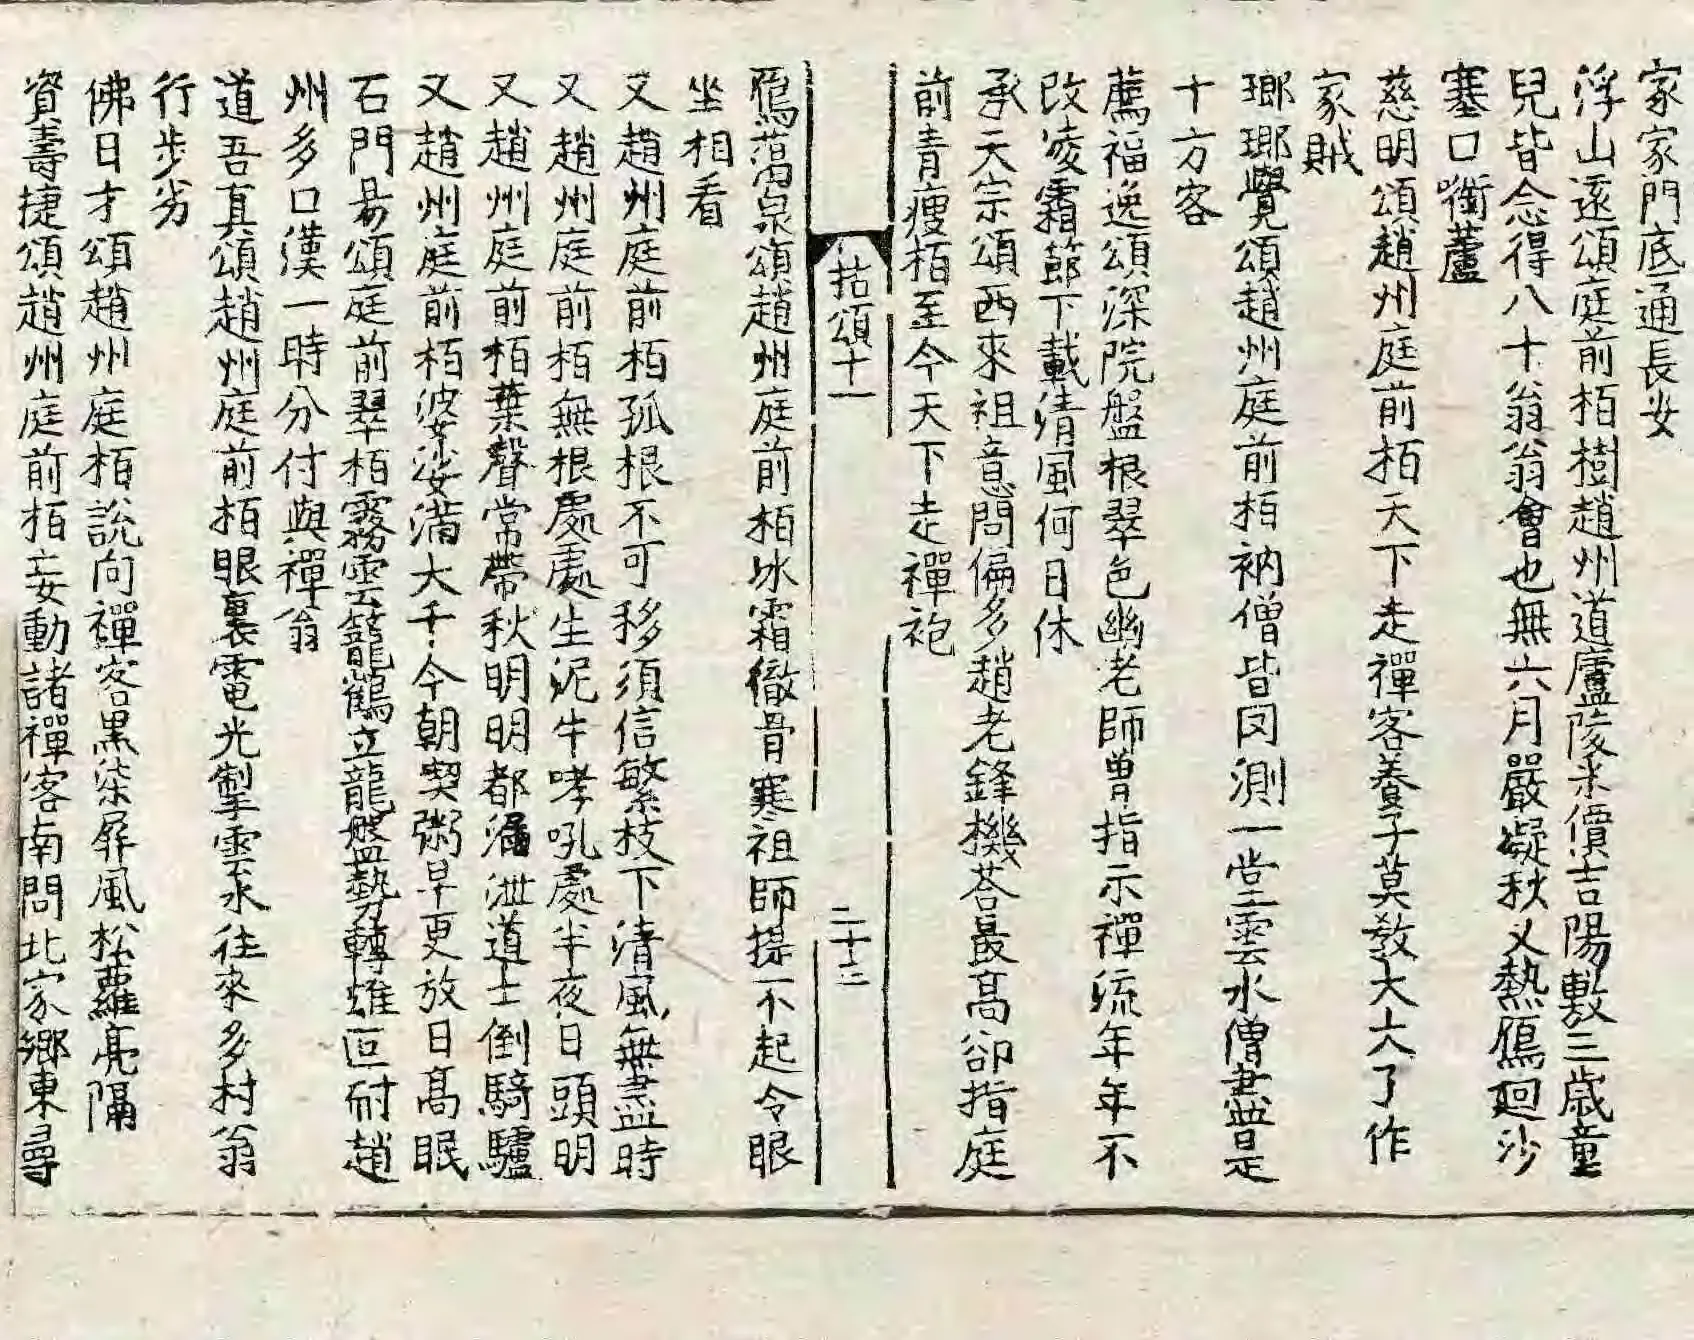 家家門底通長安
浮山遠頌庭前栢樹趙州道廬陵米價吉陽敷三歲童
兒皆念得八十翁翁會也無六月嚴凝秋又熱鴈廻沙
塞口銜蘆
慈明頌趙州庭前栢天下走禪客養子莫敎大大了作
家賊
瑯瑘覺頌趙州庭前栢衲僧皆罔測一堂雲水僧盡是
十方客
薦福逸頌深院盤根翠色幽老師曾指示禪流年年不
改凌霜節下載清風何日休
承天宗頌西來祖意問偏多趙老鋒機荅最高卻指庭
前青瘦栢至今天下走禪袍
拈頌十一 二十三
鴈蕩泉頌趙州庭前栢冰霜徹骨寒祖師提不起令眼
坐相看
又趙州庭前栢孤根不可移須信繁枝下清風無盡時
又趙州庭前栢無根處處生泥牛哮吼處半夜日頭明
又趙州庭前栢葉聲常帶秋明明都漏泄道士倒騎驢
又趙州庭前栢婆娑滿大千今朝喫粥早更放日高眠
石門易頌庭前翠栢霧雲籠鶴立龍盤勢轉雄叵耐趙
州多口漢一時分付與禪翁
道吾真頌趙州庭前栢眼裏電光掣雲水往來多村翁
行步劣
佛日才頌趙州庭栢說向禪客黑柒屛風松蘿亮隔
資壽捷頌趙州庭前栢妄動諸禪客南問北家鄉東尋